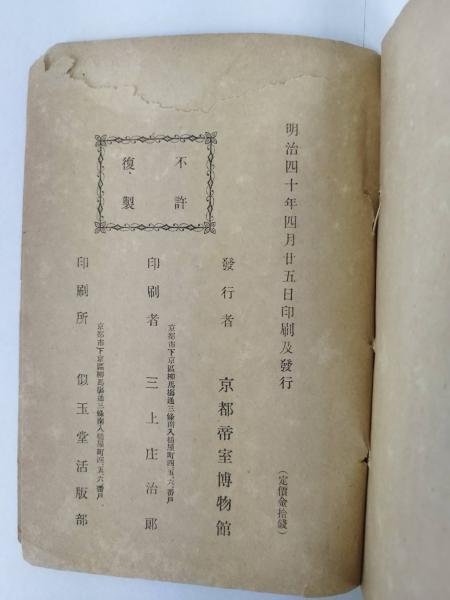 明治四十年四月廿五日印刷及發行
(定價金拾錢)
發行者 京都帝室博物館
京都市下京區柳馬塲通三條南入槌屋町四五六番戸
印刷者 三上庄治郎
京都市下京區柳馬塲通三條南入槌屋町四五六番戸
印刷所 似玉堂活版部
不許
復製